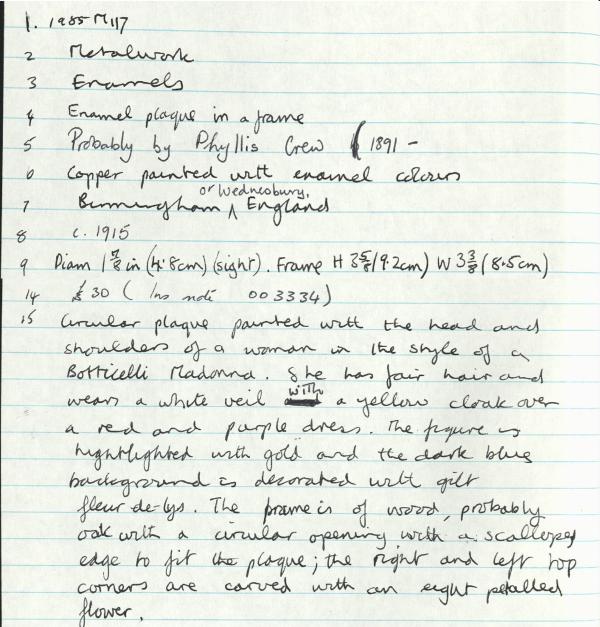 1. 1985 M117
2 Metalwork
3 Enamels
4 Enamel plaque in a frame
5 Probably by Phyllis Crew (1891 -
6 Copper painted with enamel colours
or Wednesbury,
7 Birmingham ∧ England
8 c. 1915
9 Diam 1 7/8 in (4.8cm) (sight). Frame H 3 5/8 (9.2cm) W 3 3/8 (8.5cm)
14 £30 (Ins note 003334)
15 Circular plaque painted with the head and
shoulders of a woman in the style of a
Botticelli Madonna. She has fair hair and
wears a white veil with a yellow cloak over
a red and purple dress. The figure is
hightlighted with gold and the dark blue
background is decorated with gilt
fleur-de-lys. The frame is of wood, probably
oak with a circular opening with a scalloped
edge to fit the plaque; the right and left top
corners are carved with an eight petalled
flower.